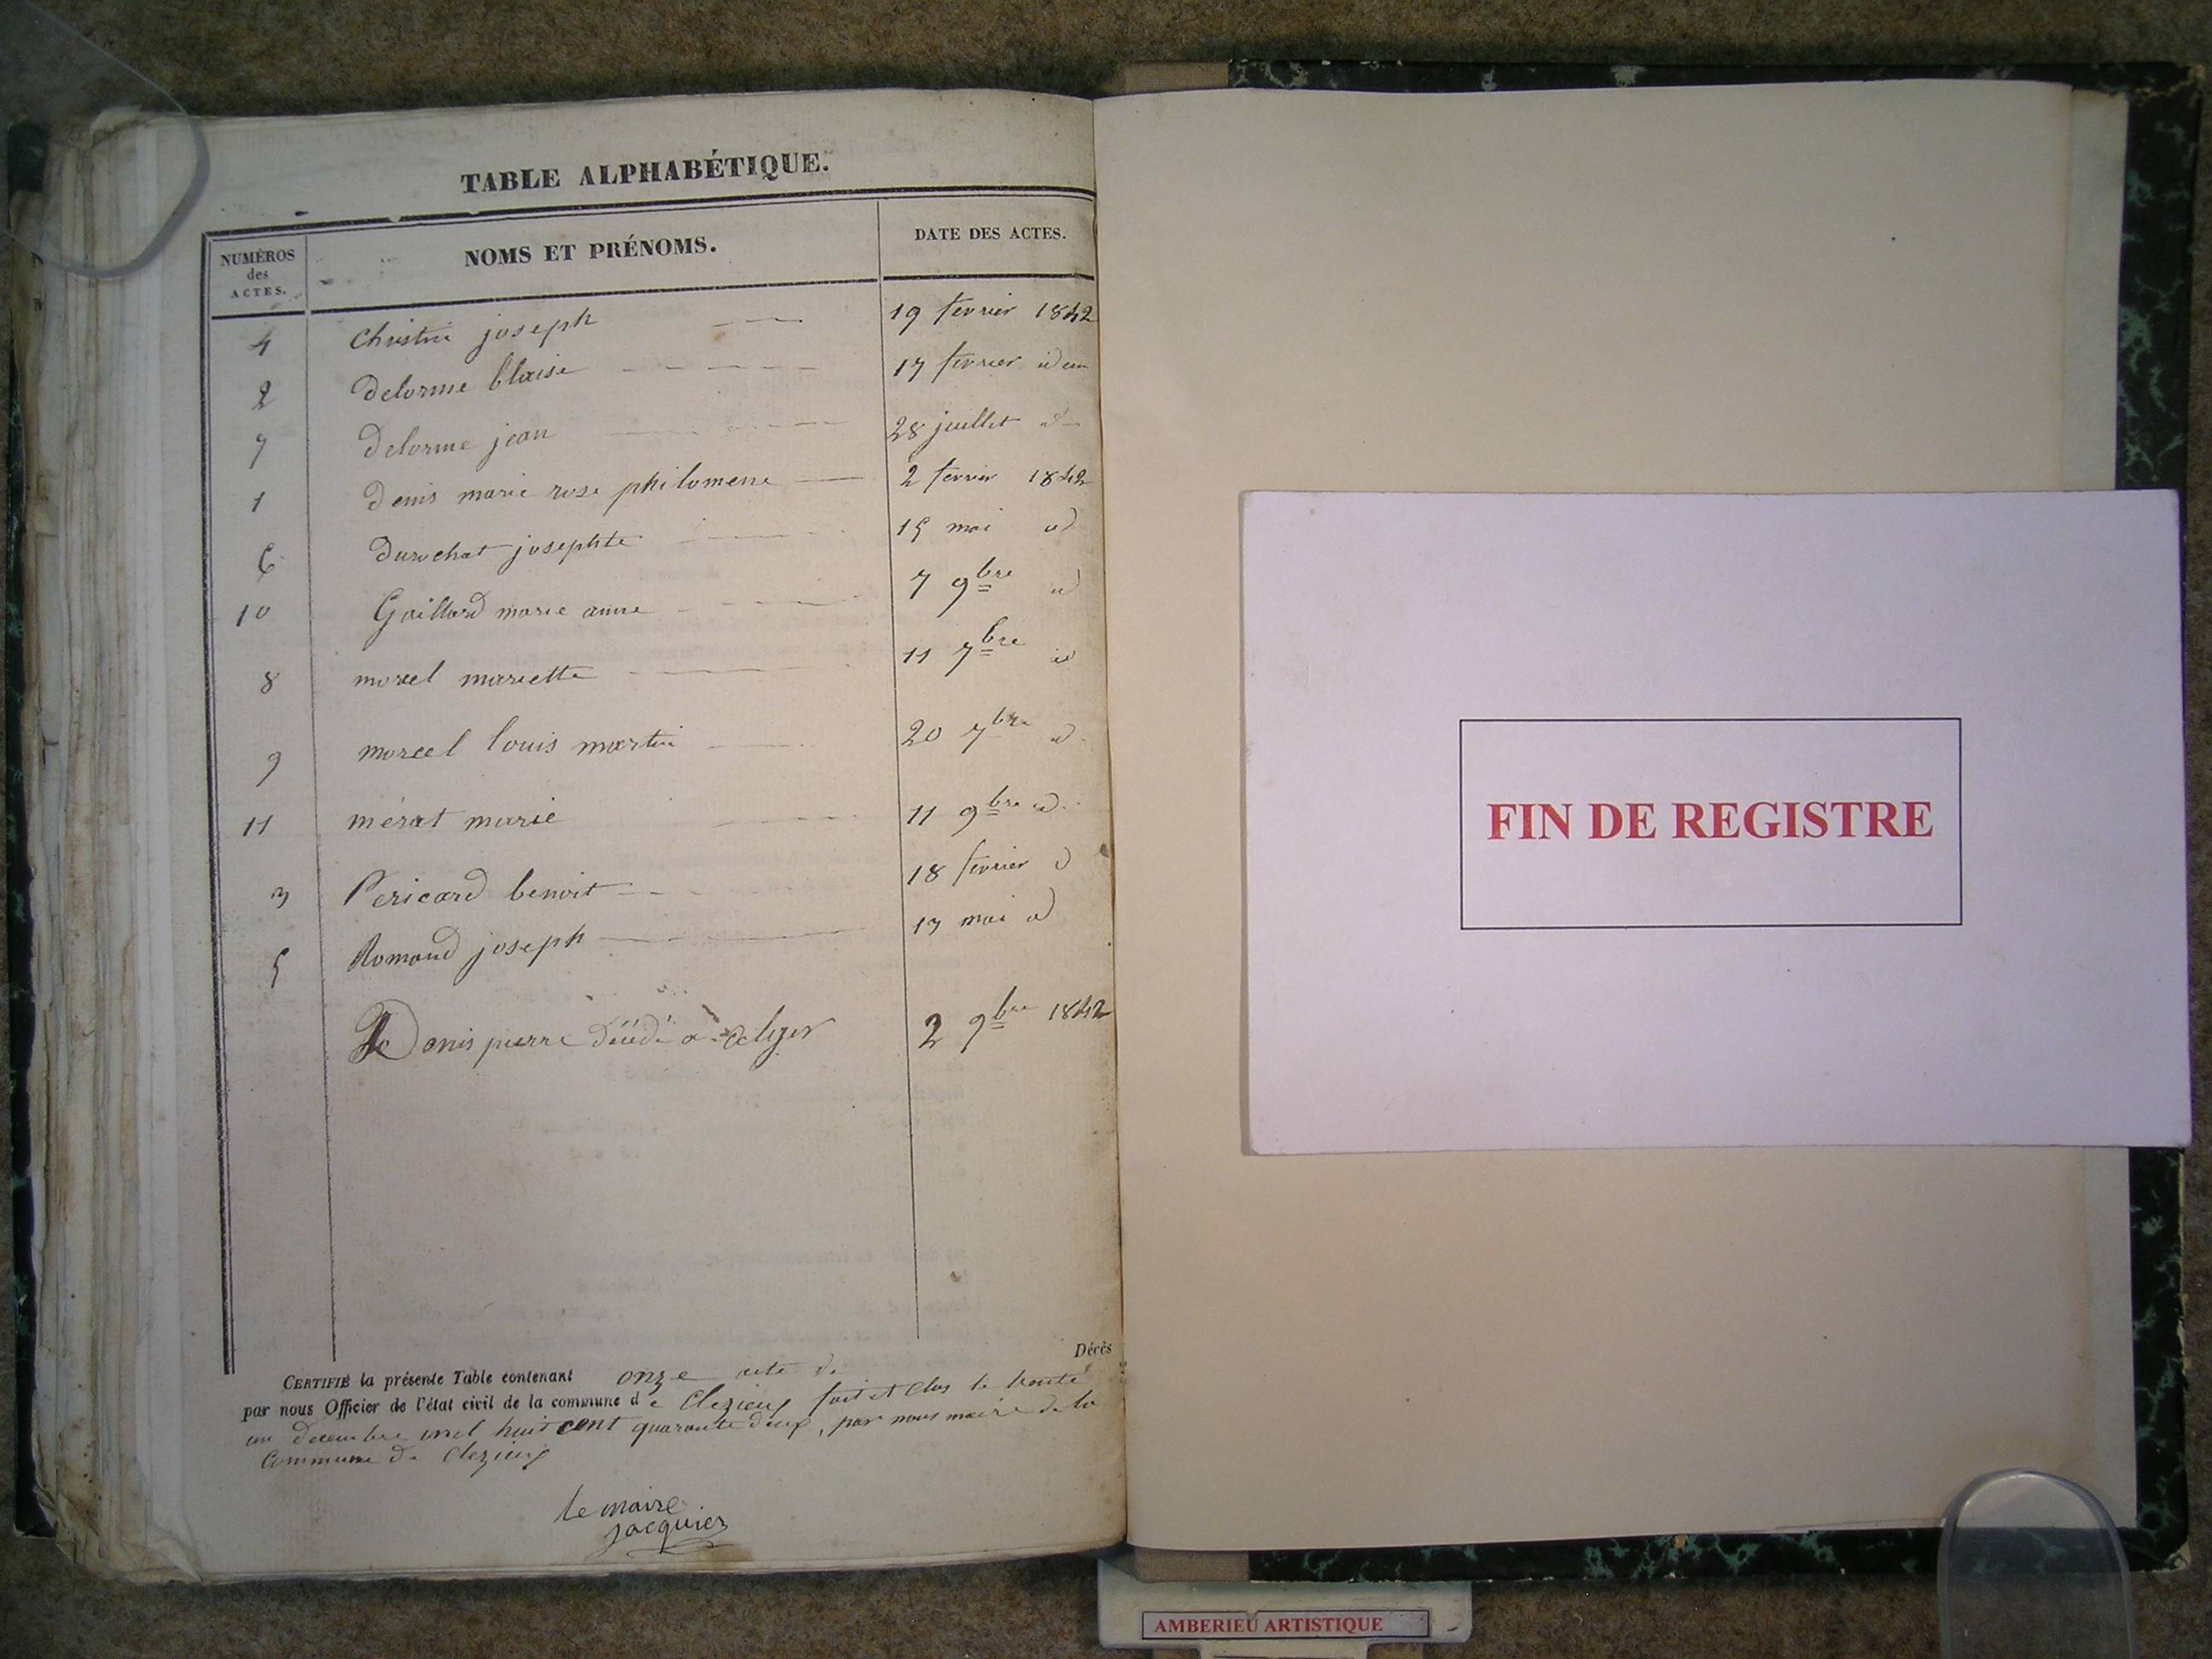 TABLE ALPHABÉTIQUE.
NUMÉROS
des
ACTES.
NOMS ET PRÉNOMS.
DATE DES ACTES.
4 Christin joseph 19 fevrier 1842
2 Delorme blaise 17 fevrier idem
7 Delorme jean 28 juillet d
1 Denis marie rose philomene 2 fevrier 1842
6 Durochat josephte 15 mai id
10 Gaillard marie anne 7 9bre id
8 morel mariette 11 7bre id
9 morel louis martin 20 7bre id
11 mérat marie 11 9bre id
3 Pericard benoit 18 fevrier d
5 Romand joseph 17 mai id
Denis pierre décédé a alger 2 9bre 1842
Décès
CERTIFIÉ la présente Table contenant onze acte de
par nous Officier de l'état civil de la commune de Clezieu fait et clos le trente
un decembre mil huit cent quarante deux, par nous maire de la
Commune de Clezieu
le maire
jacquier
FIN DE REGISTRE
AMBERIEU ARTISTIQUE